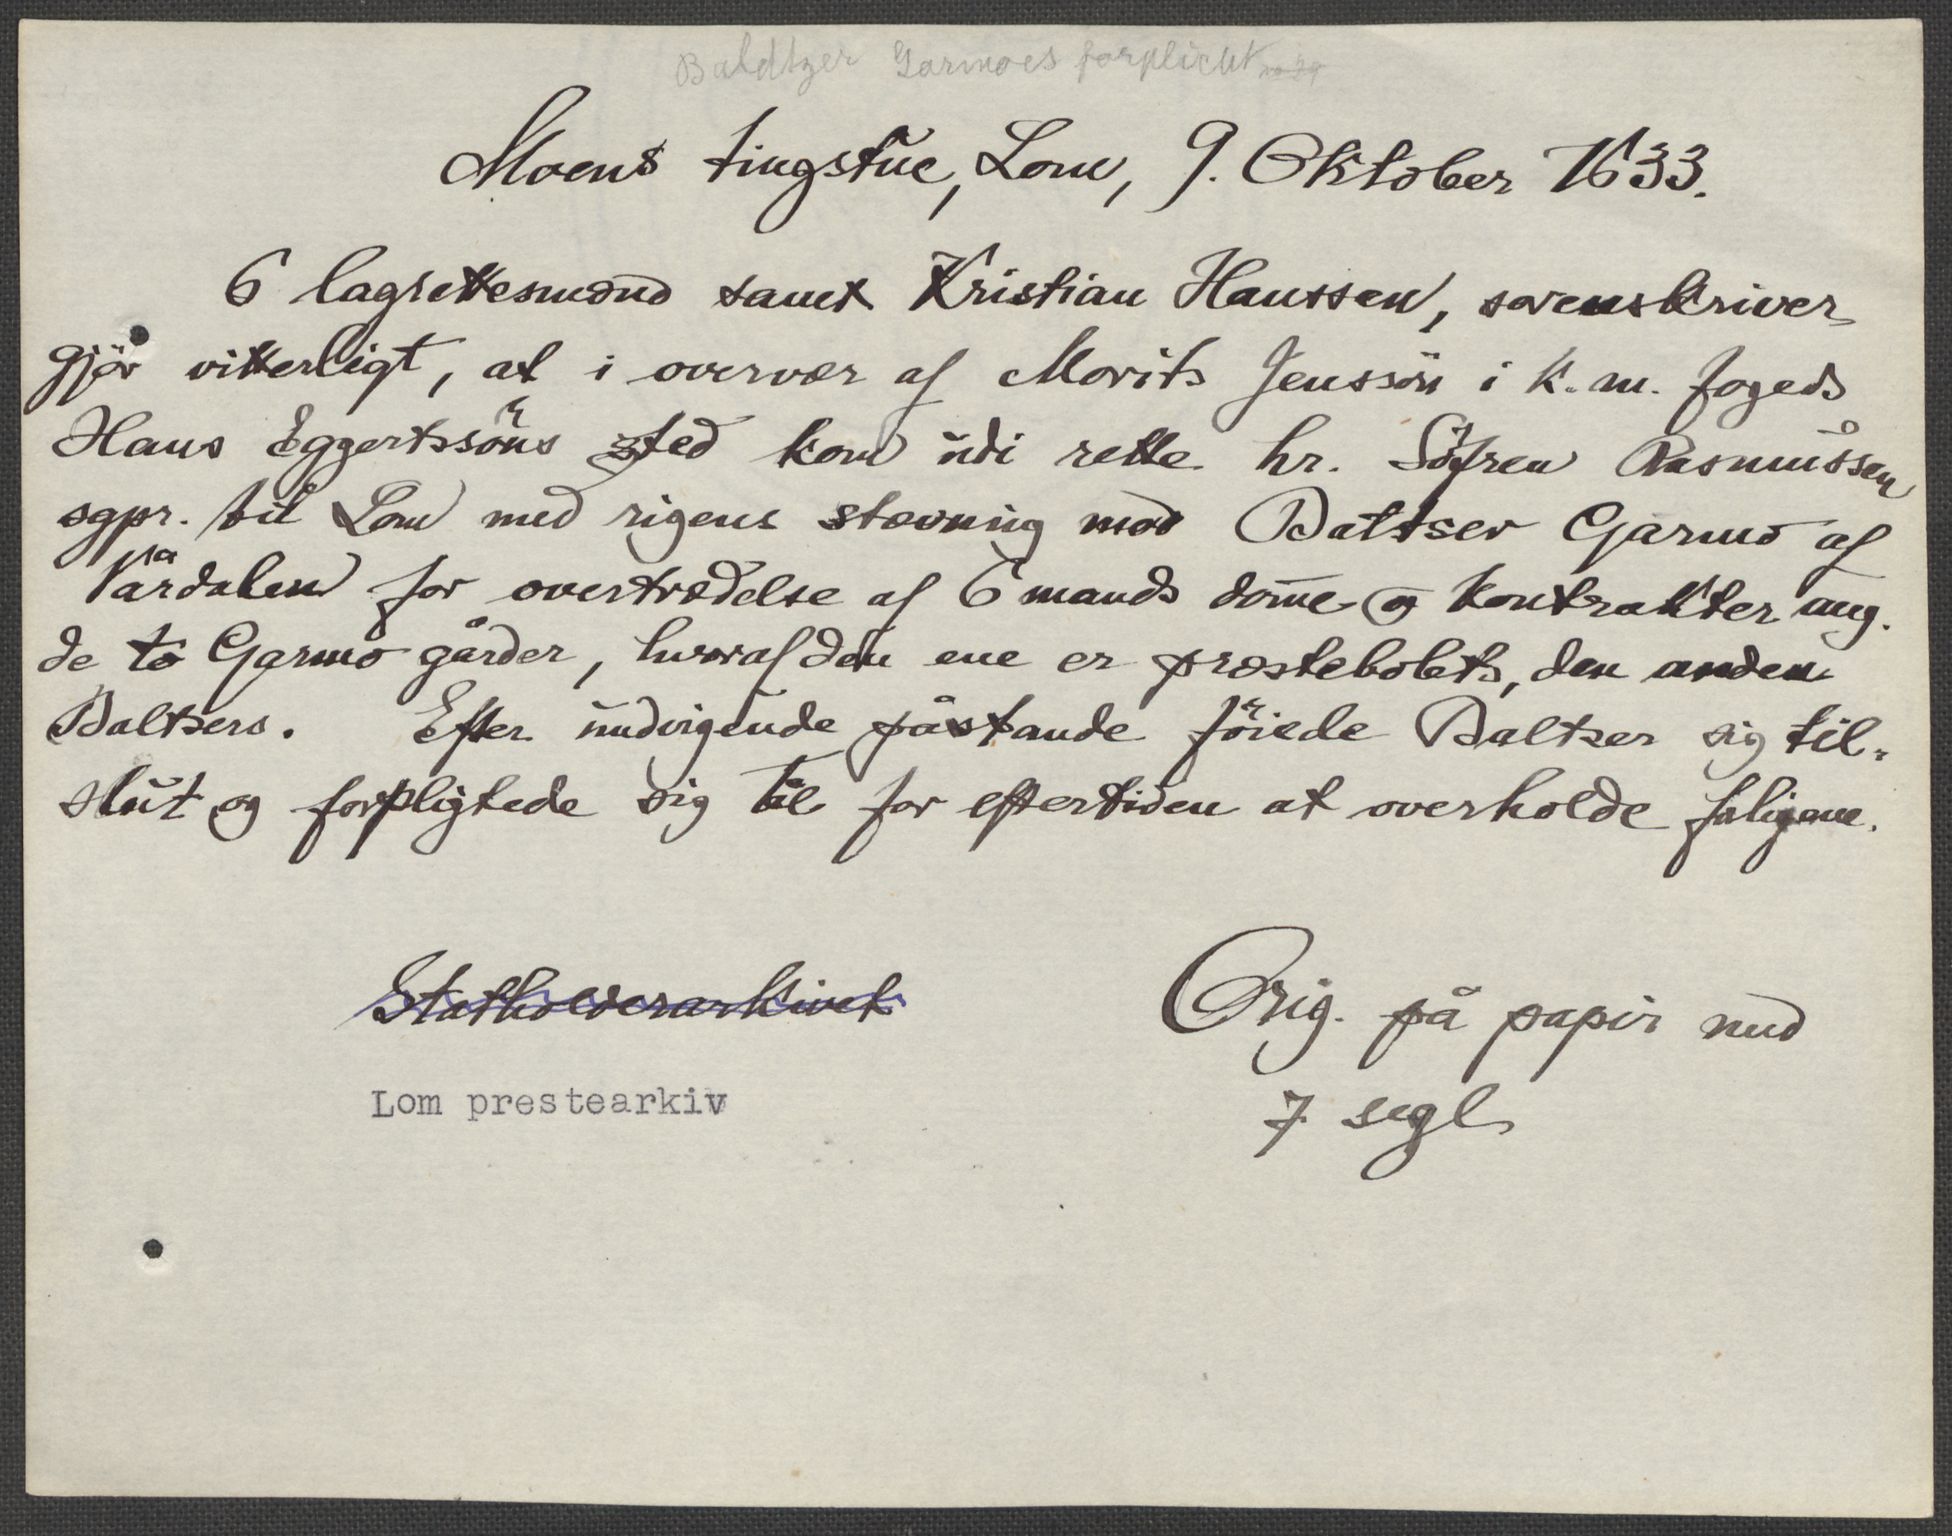 Baldtzer Garmoes forplicht
Moens tingstue, Lom, 9. Oktober 1633.
6 lagrettesmænd samt Kristian Hanssen, sorenskriver
gjör vitterligt, at i overvær af Morits Jenssön i k. m. fogeds
Hans Eggertssöns sted kom udi rette hr. Söfren Rasmussen
sgpr. til Lom med rigens stævning mod Baltser Garmo af
Vårdalen for overtrædelse af 6 mands domme og kontrakter ang.
de to Garmo gårder, hvoraf den ene er præstebolets, den anden
Baltsers. Efter undvigende påstande föiede Baltser sig til-
slut og forpligtede sig til for eftertiden at overholde
Statholderarkivet
Lom prestearkiv
Orig. på papir med
7 segl